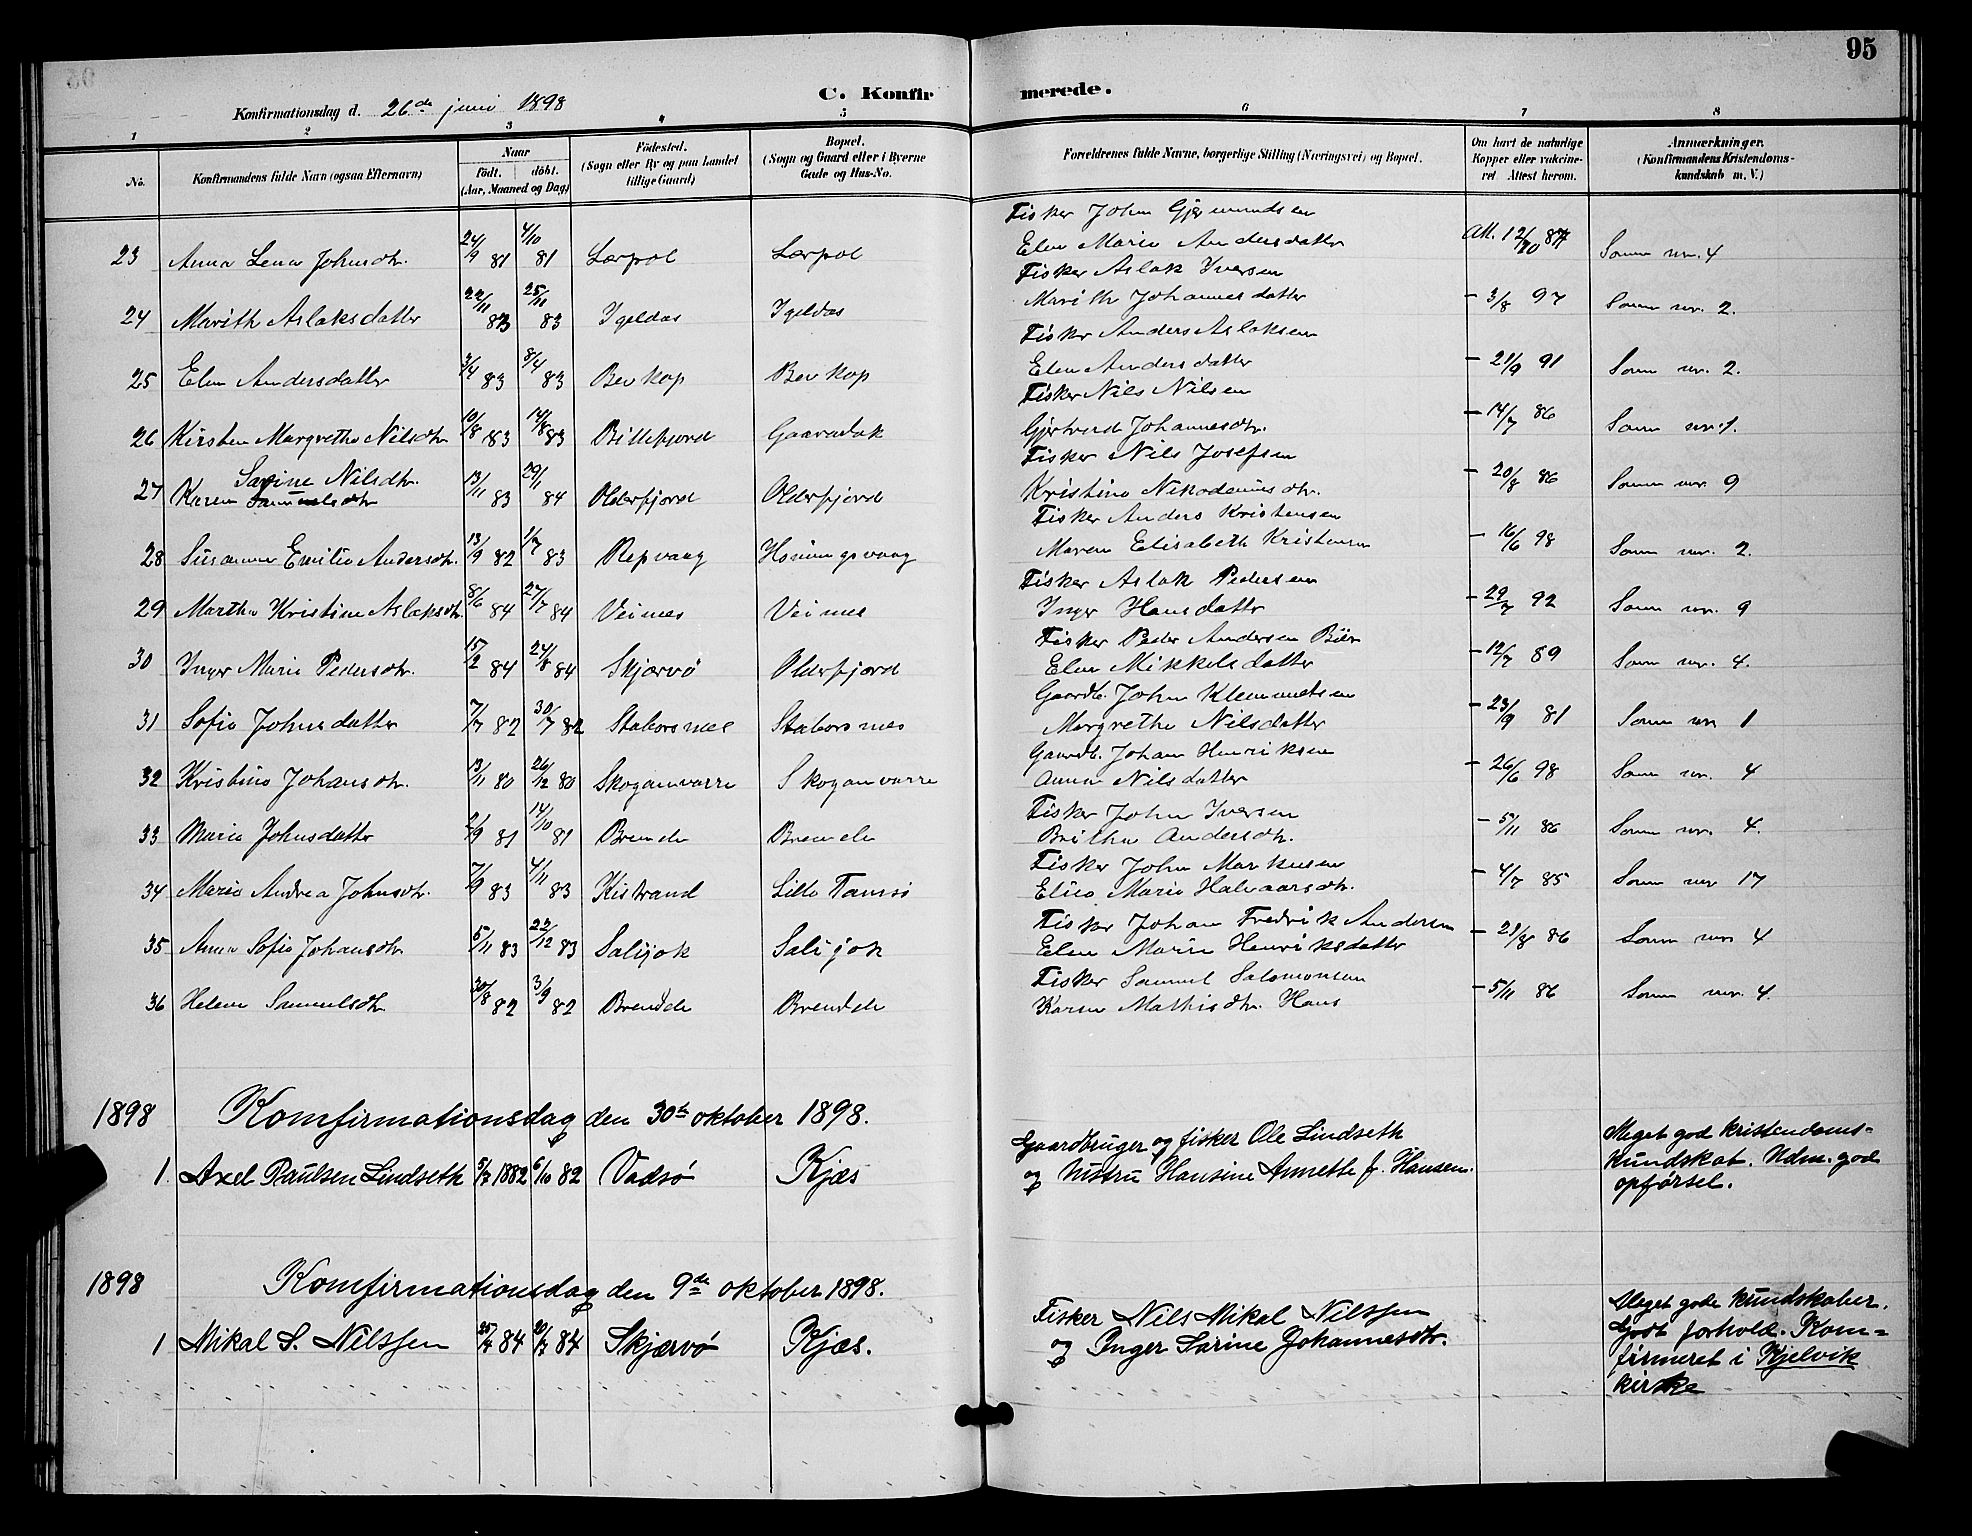 95
C. Konfirmerede.
Konfirmationsdag d. 26de juni 1898
1 2 3 4 5 6 7 8
No. Konfirmandens fulde Navn (ogsaa Efternavn) Naar født. døbt. (Aar, Maaned og Dag) Fødested. (Sogn eller By og paa Landet tillige Gaard) Bopæl. (Sogn og Gaard eller i Byerne Gade og Hus-No. Forældrenes fulde Navne, borgerlige Stilling (Næringsvei) og Bopæl. Om havt de naturlige Kopper eller vaccineret Attest herom. Anmærkninger. (Konfirmandens Kristendomskundskab m. V.)
Fisker John Gjermundsen
23 Anna Lena Johnsdtr. 24/9 81 4/10 81 Lærpol Lærpol Elen Maria Andersdatter Att. 12/10 87 Som nr. 4
Fisker Aslak Iversen
24 Marith Aslaksdatter 22/11 83 25/11 83 Igeldas Igeldas Marith Johannesdatter - 3/8 97 Som nr. 2.
Fisker Anders Aslaksen
25 Elen Andersdatter 3/4 83 8/4 83 Bevkop Bevkop Elen Andersdatter - 21/9 91 Som nr. 2.
Fisker Nils Nilsen
26 Kirsten Margrethe Nilsdtr. 10/8 83 14/8 83 Billefjord Gaaradak Gjertrud Johannesdtr. - 14/7 86 Som nr. 1.
Sarine Nilsdtr. Fisker Nils Josefsen
27 Karen Samuelsdtr 13/11 83 29/1 84 Olderfjord Olderfjord Kristine Nikodemusdtr. - 20/8 86 Som nr. 9
Fisker Anders Kristensen
28 Susanna Emilie Andersdtr. 13/9 82 1/7 83 Repvaag Honingsvaag Maren Elisabeth Kristensen - 16/6 98 Som nr. 2.
Fisker Aslak Pedersen
29 Martha Kristine Aslaksdtr. 8/6 84 27/7 84 Veines Veines Inger Hansdatter - 29/7 92 Som nr. 9
Fisker Peder Andersen
30 Inger Maria Pedersdtr. 15/2 84 24/8 84 Skjærvö Olderfjord Elen Mikkelsdatter - 12/7 89 Som nr. 4.
Gaardb. John Klemmetsen
31 Sofie Johnsdatter 7/7 82 30/7 82 Staborsnes Staborsnes Margrethe Nilsdatter - 23/9 81 Som nr 1
Gaardb. Johan Henriksen
32 Kristine Johansdtr. 13/11 80 26/12 80 Skoganvarre Skoganvarre Anna Nilsdatter - 26/6 98 Som nr. 4
Fisker John Iversen
33 Maria Johnsdatter 2/9 81 14/10 81 Brende Brende Britha Andersdtr. - 5/11 86 Som nr. 4.
Fisker John Markusen
34 Maria Andrea Johnsdtr. 7/9 83 4/11 83 Kistrand Lille Tamsö Elisa Maria Halvaarsdtr. - 4/7 85 Som nr 17
Fisker Johan Fredrik Andersen
35 Anna Sofie Johansdtr 5/11 83 22/12 83 Salijok Salijok Elen Marie Henriksdatter - 21/8 86 Som nr 4
Fisker Samuel Salamonsen
36 Helene Samuelsdtr 30/8 82 3/9 82 Brende Brende Karen Mathisdtr. Hans - 5/11 86 Som nr. 4.
1898 Komfirmationsdag den 30te oktober 1898.
Gaardbruger og fisker Ole Lindseth
1. Axel Paulsen Lindseth 5/7 1882 6/10 82 Vadsø Kjæs og hustru Hansine Annette f. Hansen.
Meget god kristendoms=
kundskab. Udm. god
opførsel.
1898 Komfirmationsdag den 9de oktober 1898.
Fisker Nils Mikal Nilssen
1 Mikal S. Nilssen 84 84 Skjærvø Kjæs. og Inger Sarine Johannesdtr.
Meget gode kundskaber.
Godt forhold. Kom=
firmeret i Kjelvik
kirke